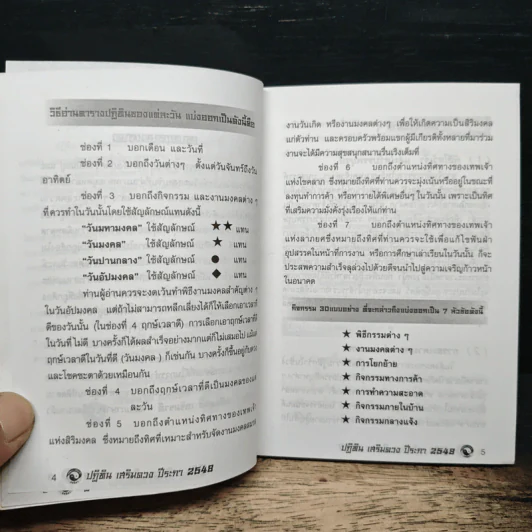 วิธีอ่านตารางปฏิทินของแต่ละวัน แบ่งออกเป็นดังนี้คือ
ช่องที่ 1 บอกเดือน และวันที่
ช่องที่ 2 บอกถึงวันต่างๆ ตั้งแต่วันจันทร์ถึงวัน
อาทิตย์
ช่องที่ 3 บอกถึงกิจกรรม และงานมงคลต่าง ๆ
ที่ควรทำในวันนั้นโดยใช้สัญลักษณ์แทนดังนี้
"วันมหามงคล" ใช้สัญลักษณ์ ★★ แทน
"วันมงคล" ใช้สัญลักษณ์ ★ แทน
"วันปานกลาง" ใช้สัญลักษณ์ ● แทน
"วันอัปมงคล" ใช้สัญลักษณ์ ◆ แทน
ท่านผู้อ่านควรจะงดเว้นทำพิธีงานมงคลสำคัญต่าง ๆ
ในวันอัปมงคล แต่ถ้าไม่สามารถหลีกเลี่ยงได้ก็ให้เลือกเอาเวลาที่
ดีของวันนั้น (ในช่องที่ 4 ฤกษ์เวลาดี) การเลือกเอาฤกษ์เวลาที่ดี
ในวันที่ไม่ดี บางครั้งก็ได้ผลสำเร็จอย่างมากแต่ก็ไม่เสมอไป แม้แต่
ฤกษ์เวลาดีในวันที่ดี (วันมงคล) ก็เช่นกัน บางครั้งก็ขึ้นอยู่กับดวง
และโชคชะตาด้วยเหมือนกัน
ช่องที่ 4 บอกถึงฤกษ์เวลาที่ดีเป็นมงคลของแต่
ละวัน
ช่องที่ 5 บอกถึงตำแหน่งทิศทางของเทพเจ้า
แห่งสิริมงคล ซึ่งหมายถึงทิศที่เหมาะสำหรับจัดงานมงคลสมรส
4 ปฏิทิน เสริมดวง ปีระกา 2548
งานวันเกิด หรืองานมงคลต่างๆ เพื่อให้เกิดความเป็นสิริมงคล
แก่ตัวท่าน และครอบครัวพร้อมแขกผู้มีเกียรติทั้งหลายที่มาร่วม
งานจะได้มีความสุขสนุกสนานรื่นเริงเต็มที่
ช่องที่ 6 บอกถึงตำแหน่งทิศทางของเทพเจ้า
แห่งโชคลาภ ซึ่งหมายถึงทิศที่ท่านควรจะมุ่งเน้นหรืออยู่ในขณะที่
ลงทุนทำการค้า หรือทำรายได้พิเศษอื่นๆ ในวันนั้น เพราะเป็นทิศ
ที่เสริมความมั่งคั่งรุ่งเรืองให้แก่ท่าน
ช่องที่ 7 บอกถึงตำแหน่งทิศทางของเทพเจ้า
แห่งลาภยศซึ่งหมายถึงทิศที่ท่านควรจะใช้เพื่อแก้ไขฟันฝ่า
อุปสรรคในหน้าที่การงาน หรือการศึกษาเล่าเรียนในวันนั้น ก็จะ
ประสพความสำเร็จลุล่วงไปด้วยดีจนนำไปสู่ความเจริญก้าวหน้า
ในอนาคต
กิจกรรม 30แบบอย่าง ที่จะกล่าวถึงแบ่งออกเป็น 7 หัวข้อดังนี้
★ พิธีกรรมต่าง ๆ
★ งานมงคลต่าง ๆ
★ การโยกย้าย
★ กิจกรรมทางการค้า
★ การทำความสะอาด
★ กิจกรรมภายในบ้าน
★ กิจกรรมกลางแจ้ง
ปฏิทิน เสริมดวง ปีระกา 2548 5